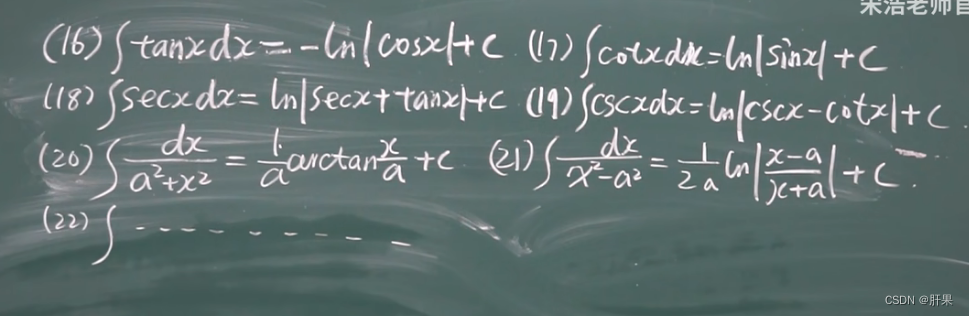 宋浩老师官
(16) ∫tanxdx = -ln|cosx|+C (17) ∫cotxdx=ln|sinx|+C
(18) ∫secxdx= ln|secx+tanx|+C (19) ∫cscxdx=ln|cscx-cotx|+C
(20) ∫dx/(a²+x²) = 1/a arctan x/a +C (21) ∫dx/(x²-a²) = 1/(2a) ln|(x-a)/(x+a)|+C.
(22) ∫----------
CSDN @肝果